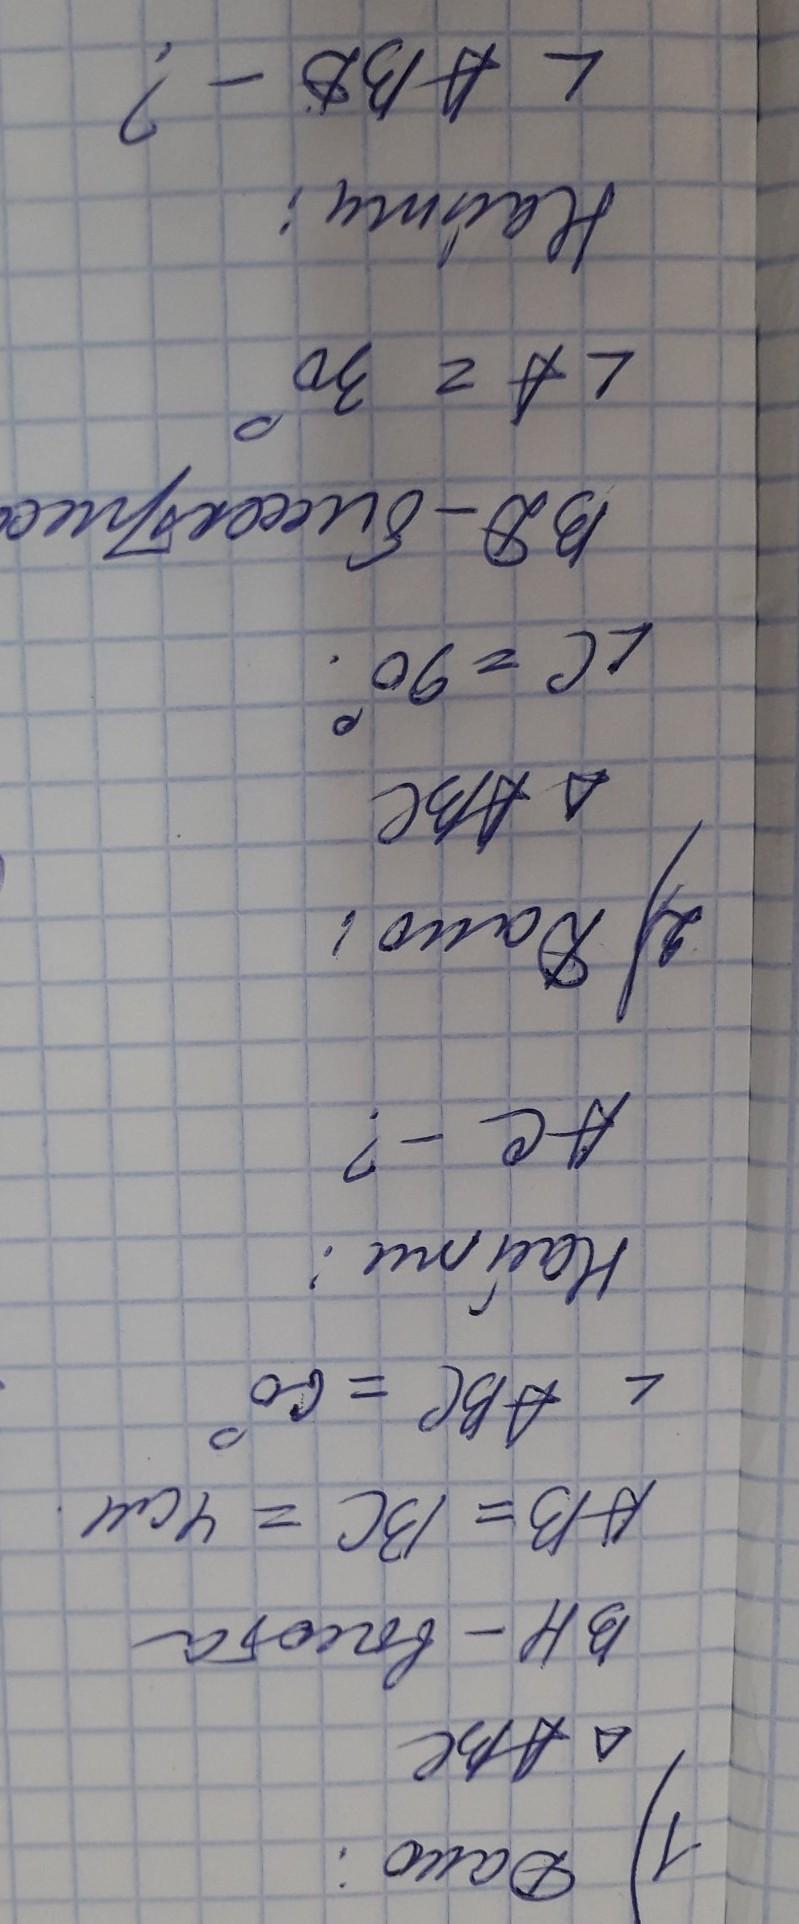 1) Дано:
△ ABC
BH - высота
AB = BC = 4см.
∠ ABC = 60°
Найти:
AC - ?
2) Дано:
△ ABC
∠C = 90°.
BD - биссектриса
∠A = 30°
Найти:
∠ ABD - ?